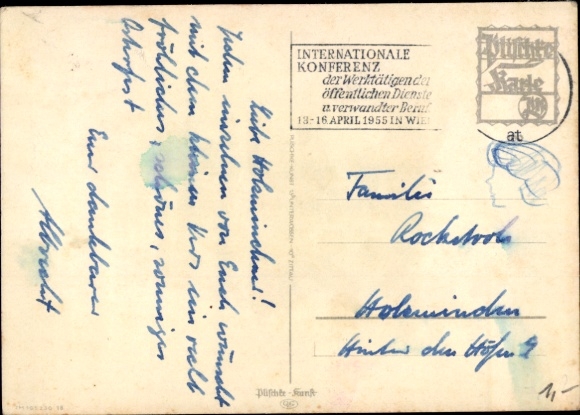 Liebe Holzmindener!
Jedem einzelnen von Euch wünscht
mit dem kleinen Vers ein recht
fröhliches, schönes, sonniges
Osterfest
Euer dankbarer
Albrecht
INTERNATIONALE
KONFERENZ
der Werktätigen der
öffentlichen Dienste
u. verwandter Beruf
13.-16. APRIL 1955 IN WIE
Plüschke
Karte
at
Familie
Holzminden
Hinter den Höfen 9
Plüschke-Kunst
11,-